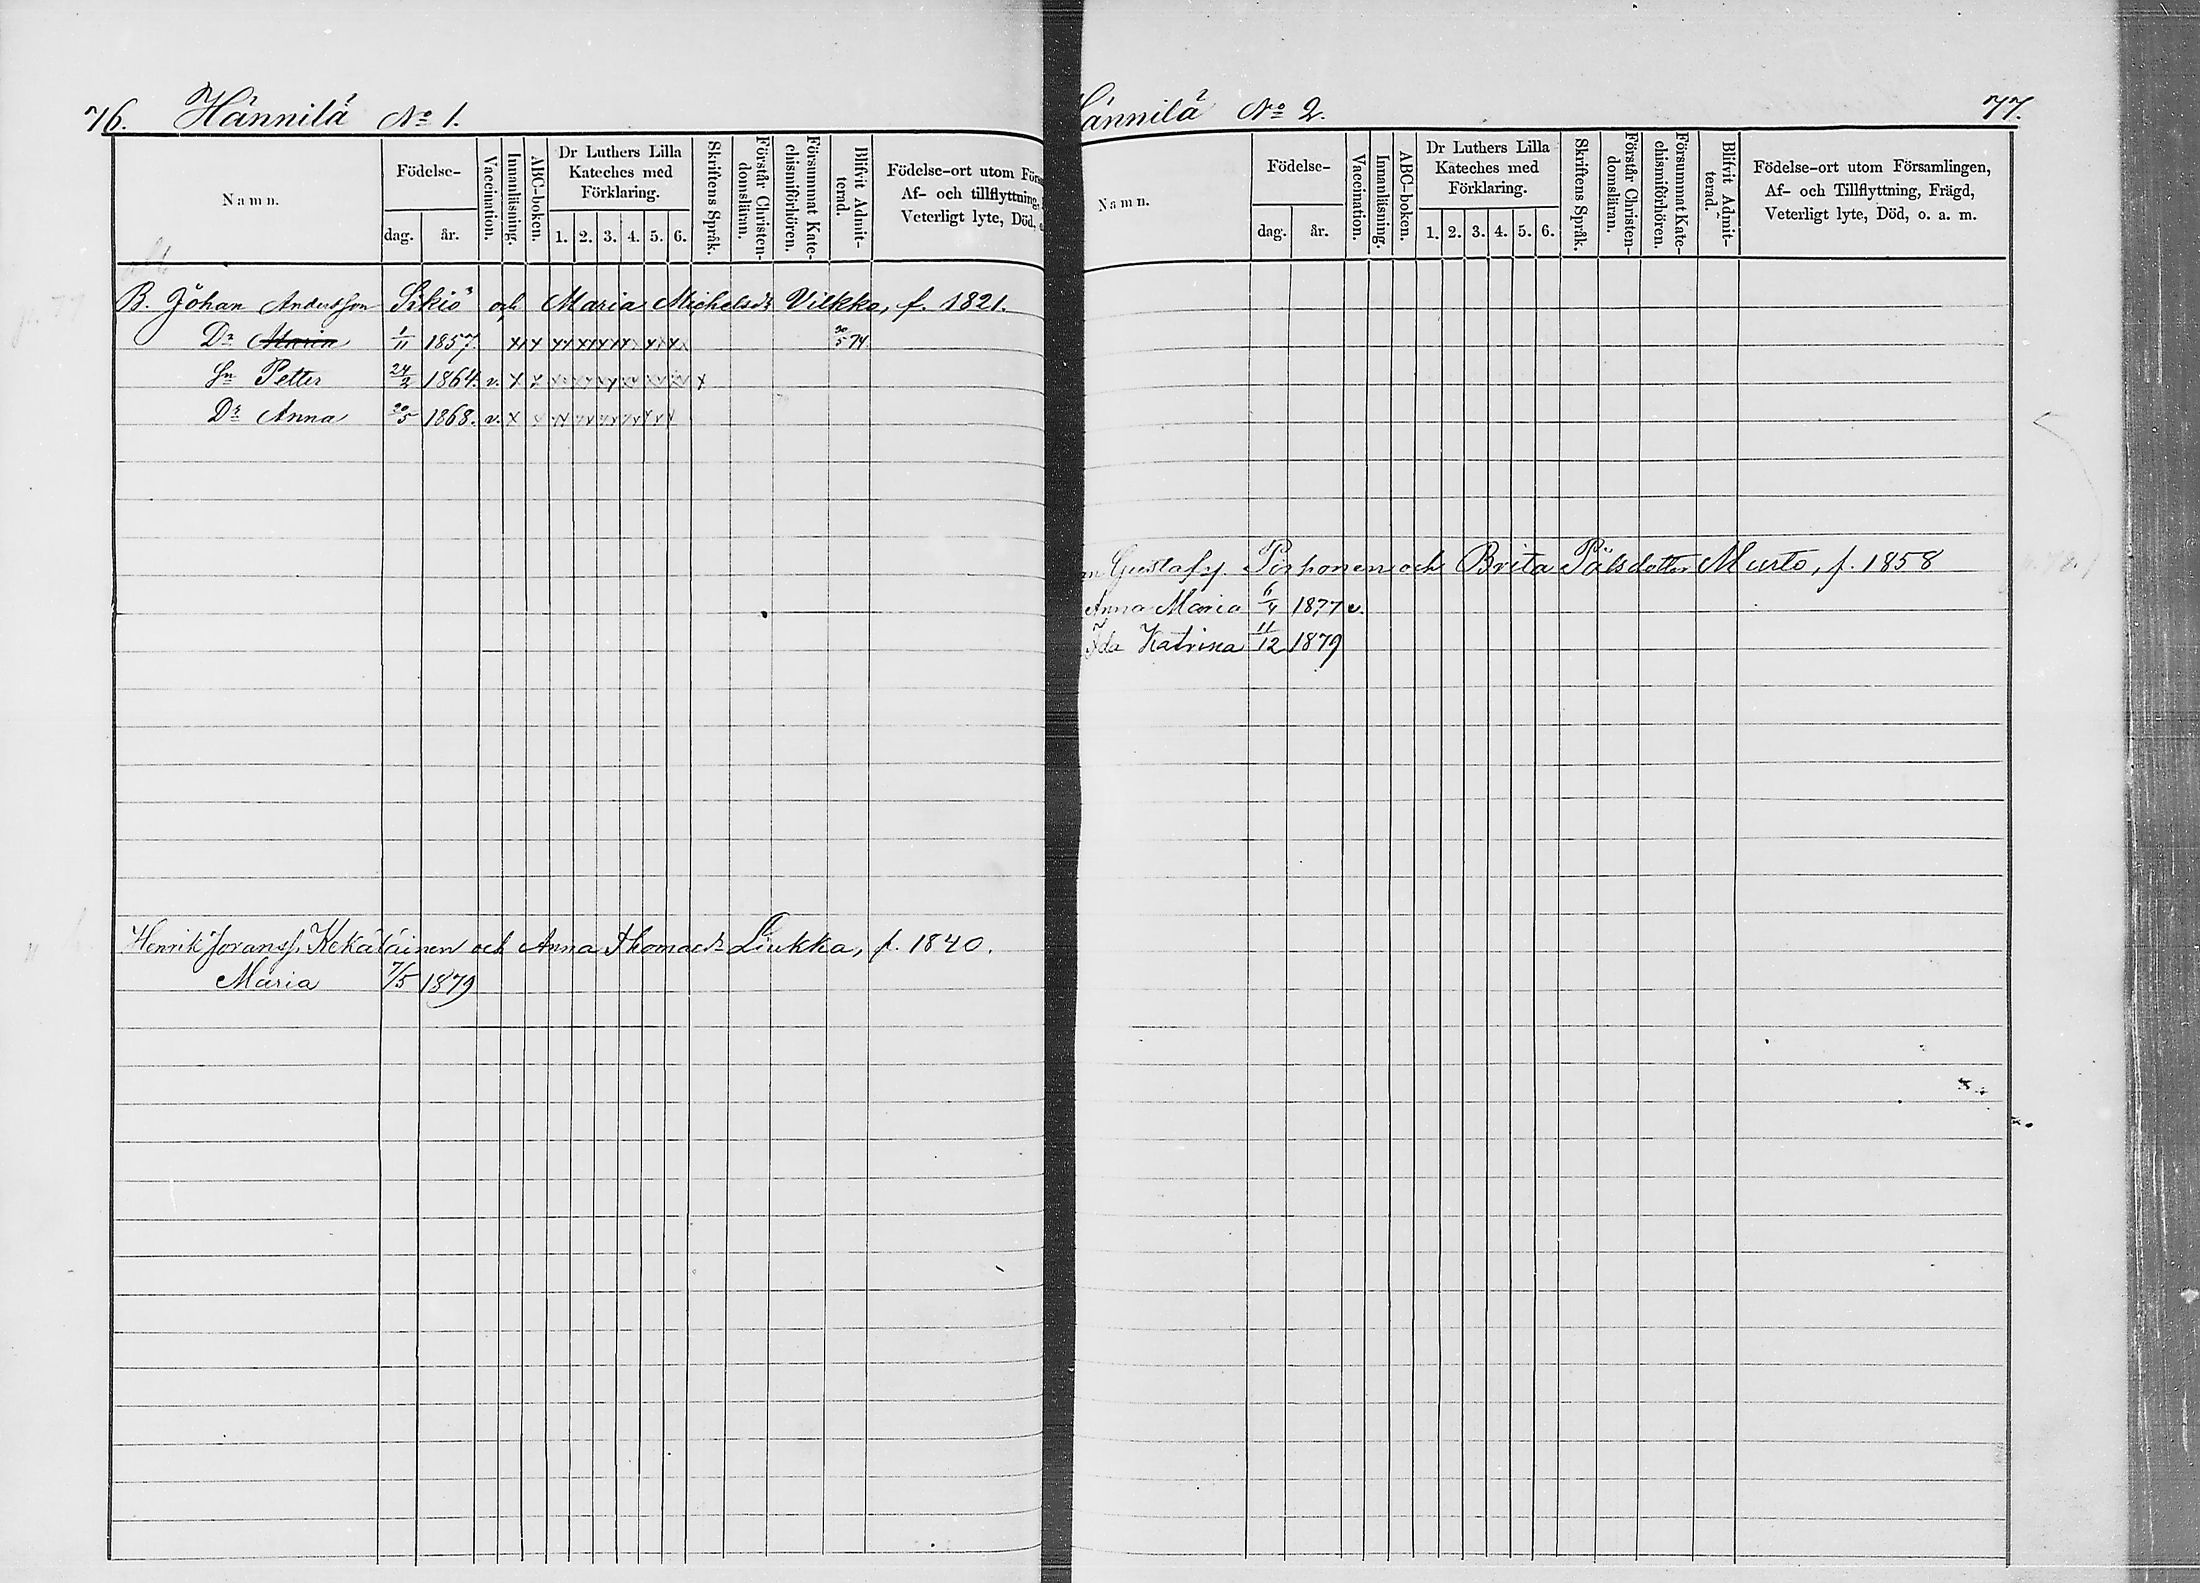 76. Hännilä No 1.
Namn.
Födelse-
dag.
år.
Vaccination.
Innanläsning.
ABC-boken.
Dr Luthers Lilla
Kateches med
Förklaring.
1. 2. 3. 4. 5. 6.
Skriftens Språk.
Förstår Christen-
domsläran.
Försummat Kate-
chismiförhören.
Blifvit Admit-
terad.
Födelse-ort utom Förs
Af- och tillflyttning,
Veterligt lyte, Död,
B. Johan Andersson Sikiö och Maria Michelsdr Vilkko, f. 1821.
Dr Maria 1/11 1857. 30/5 74
Sn Petter 24/2 1864. v.
Dr Anna 20/5 1868. v.
Henrik Joransf. Kekäläinen och Anna Thomadr Liukka, f. 1840.
Maria 7/5 1879
ännilä No 2. 77.
Namn.
Födelse-
dag.
år.
Vaccination.
Innanläsning.
ABC-boken.
Dr Luthers Lilla
Kateches med
Förklaring.
1. 2. 3. 4. 5. 6.
Skriftens Språk.
Förstår Christen-
domsläran.
Försummat Kate-
chismiförhören.
Blifvit Admit-
terad.
Födelse-ort utom Församlingen,
Af- och Tillflyttning, Frägd,
Veterligt lyte, Död, o. a. m.
an Gustafsf. Pirhonen och Brita Pålsdotter Musto, f. 1858
Anna Maria 11/4 1877 v.
Ida Katrina 11/12 1879